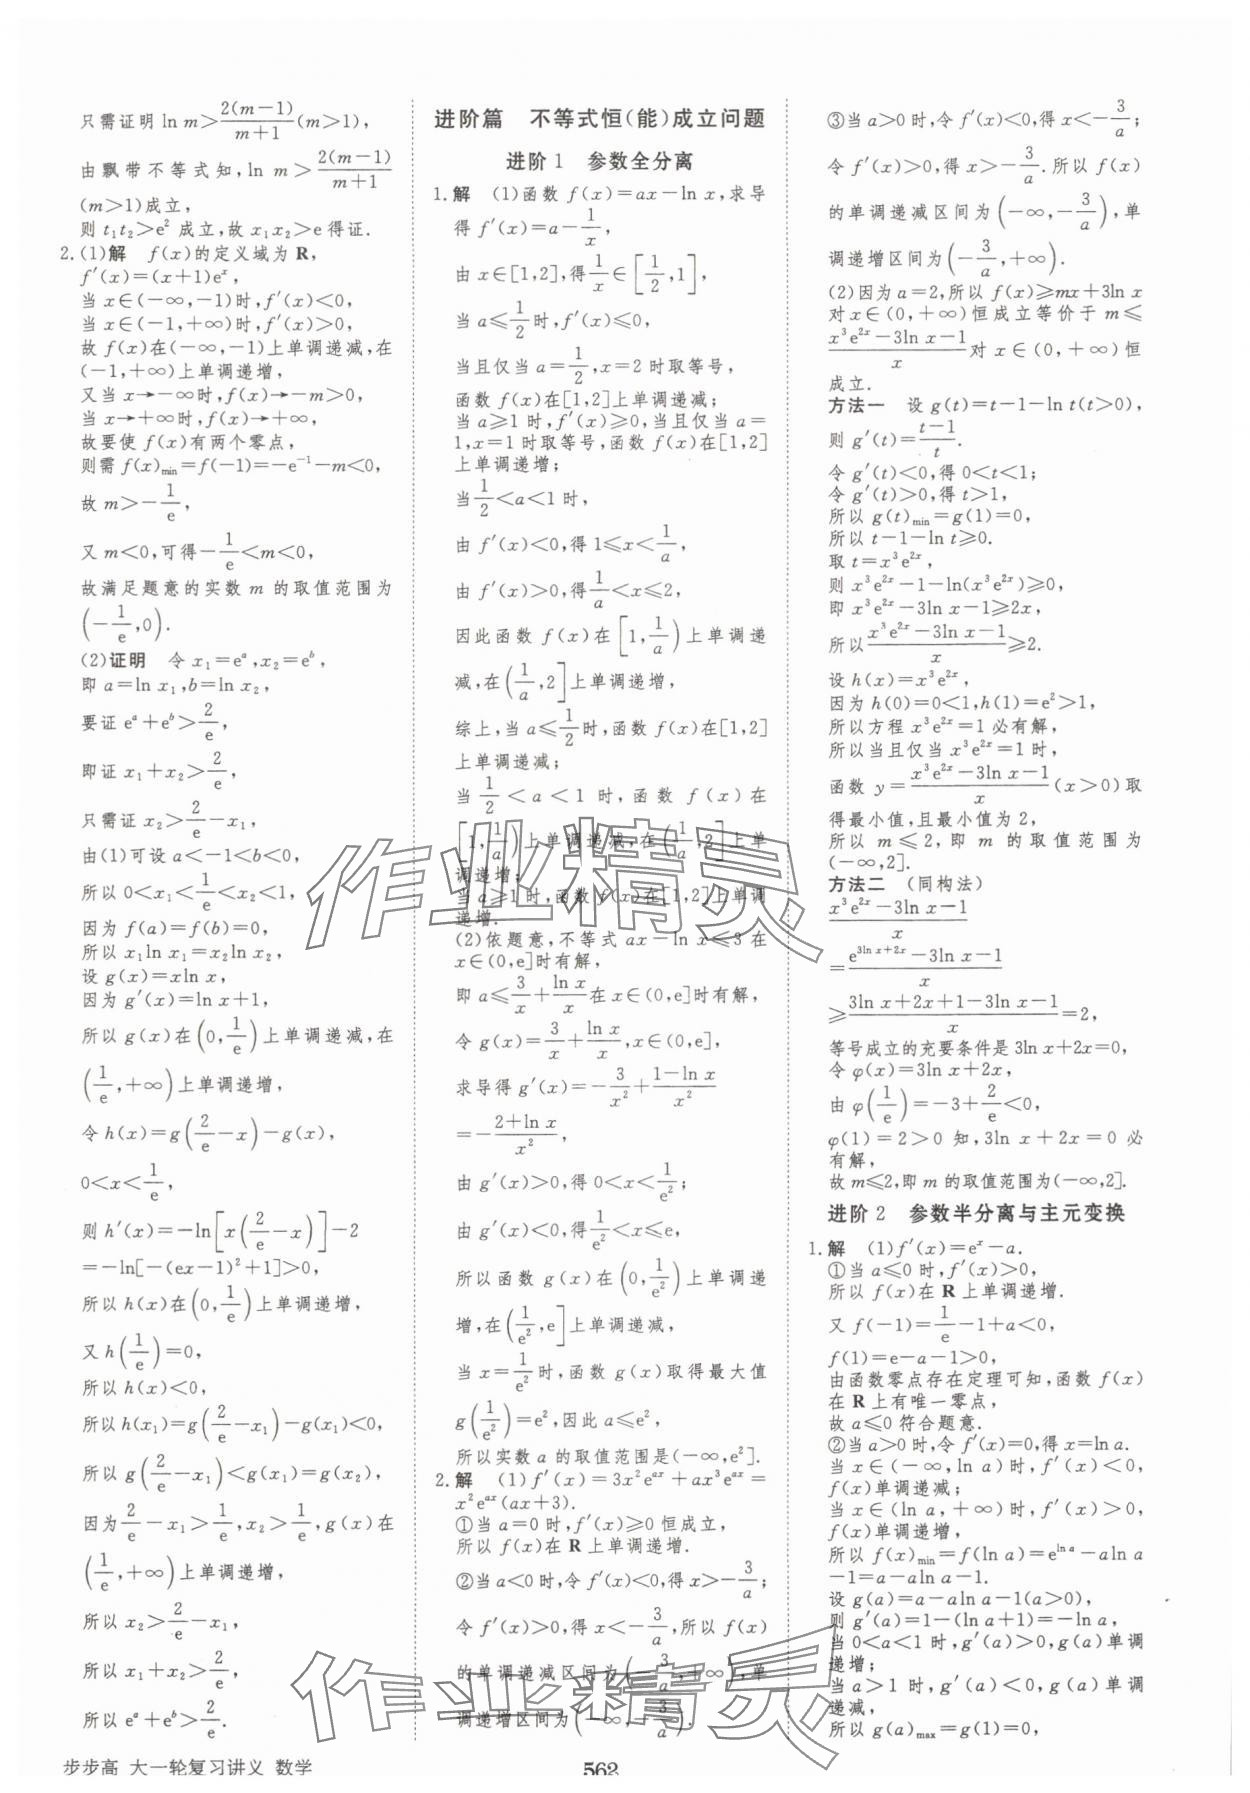 只需证明 ln m>2(m-1)/(m+1)(m>1),
由飘带不等式知,ln m>2(m-1)/(m+1)
(m>1)成立,
则 t₁t₂>e² 成立,故 x₁x₂>e 得证.
2.(1)解 f(x)的定义域为 R,
f′(x)=(x+1)eˣ,
当 x∈(-∞,-1)时,f′(x)<0,
当 x∈(-1,+∞)时,f′(x)>0,
故 f(x)在(-∞,-1)上单调递减,在
(-1,+∞)上单调递增,
又当 x→-∞时,f(x)→-m>0,
当 x→+∞时,f(x)→+∞,
故要使 f(x)有两个零点,
则需 f(x)min=f(-1)=-e⁻¹-m<0,
故 m>-1/e,
又 m<0,可得-1/e<m<0,
故满足题意的实数 m 的取值范围为
(-1/e,0).
(2)证明 令 x₁=eᵃ,x₂=eᵇ,
即 a=ln x₁,b=ln x₂,
要证 eᵃ+eᵇ>2/e,
即证 x₁+x₂>2/e,
只需证 x₂>2/e-x₁,
由(1)可设 a<-1<b<0,
所以 0<x₁<1/e<x₂<1,
因为 f(a)=f(b)=0,
所以 x₁ln x₁=x₂ln x₂,
设 g(x)=xln x,
因为 g′(x)=ln x+1,
所以 g(x)在(0,1/e)上单调递减,在
(1/e,+∞)上单调递增,
令 h(x)=g(2/e-x)-g(x),
0<x<1/e,
则 h′(x)=-ln[x(2/e-x)]-2
=-ln[-(ex-1)²+1]>0,
所以 h(x)在(0,1/e)上单调递增,
又 h(1/e)=0,
所以 h(x)<0,
所以 h(x₁)=g(2/e-x₁)-g(x₁)<0,
所以 g(2/e-x₁)<g(x₁)=g(x₂),
因为2/e-x₁>1/e,x₂>1/e,g(x)在
(1/e,+∞)上单调递增,
所以 x₂>2/e-x₁,
所以 x₁+x₂>2/e,
所以 eᵃ+eᵇ>2/e.
进阶篇 不等式恒(能)成立问题
进阶1 参数全分离
1.解 (1)函数 f(x)=ax-ln x,求导
得 f′(x)=a-1/x,
由 x∈[1,2],得1/x∈[1/2,1],
当 a≤1/2时,f′(x)≤0,
当且仅当 a=1/2,x=2 时取等号,
函数 f(x)在[1,2]上单调递减;
当 a≥1 时,f′(x)≥0,当且仅当 a=
1,x=1 时取等号,函数 f(x)在[1,2]
上单调递增;
当1/2<a<1 时,
由 f′(x)<0,得 1≤x<1/a,
由 f′(x)>0,得1/a<x≤2,
因此函数 f(x)在[1,1/a)上单调递
减,在(1/a,2]上单调递增,
综上,当 a≤1/2时,函数 f(x)在[1,2]
上单调递减;
当 1/2<a<1 时,函数 f(x)在
[1,1/a)上单调递减,在(1/a,2]上单
调递增;
当 a≥1 时,函数 f(x)在[1,2]上单调
递增.
(2)依题意,不等式 ax-ln x≤3 在
x∈(0,e]时有解,
即 a≤3/x+ln x/x在 x∈(0,e]时有解,
令 g(x)=3/x+ln x/x,x∈(0,e],
求导得 g′(x)=-3/x²+(1-ln x)/x²
=-(2+ln x)/x²,
由 g′(x)>0,得 0<x<1/e²;
由 g′(x)<0,得1/e²<x≤e,
所以函数 g(x)在(0,1/e²)上单调递
增,在(1/e²,e]上单调递减,
当 x=1/e²时,函数 g(x)取得最大值
g(1/e²)=e²,因此 a≤e²,
所以实数 a 的取值范围是(-∞,e²].
2.解 (1)f′(x)=3x²eᵃˣ+ax³eᵃˣ=
x²eᵃˣ(ax+3).
①当 a=0 时,f′(x)≥0 恒成立,
所以 f(x)在 R 上单调递增.
②当 a<0 时,令 f′(x)<0,得 x>-3/a;
令 f′(x)>0,得 x<-3/a,所以 f(x)
的单调递减区间为(-3/a,+∞),单
调递增区间为(-∞,-3/a);
③当 a>0 时,令 f′(x)<0,得 x<-3/a;
令 f′(x)>0,得 x>-3/a.所以 f(x)
的单调递减区间为(-∞,-3/a),单
调递增区间为(-3/a,+∞).
(2)因为 a=2,所以 f(x)≥mx+3ln x
对 x∈(0,+∞)恒成立等价于 m≤
(x³e²ˣ-3ln x-1)/x对 x∈(0,+∞)恒
成立.
方法一 设 g(t)=t-1-ln t(t>0),
则 g′(t)=(t-1)/t.
令 g′(t)<0,得 0<t<1;
令 g′(t)>0,得 t>1,
所以 g(t)min=g(1)=0,
所以 t-1-ln t≥0.
取 t=x³e²ˣ,
则 x³e²ˣ-1-ln(x³e²ˣ)≥0,
即 x³e²ˣ-3ln x-1≥2x,
所以(x³e²ˣ-3ln x-1)/x≥2.
设 h(x)=x³e²ˣ,
因为 h(0)=0<1,h(1)=e²>1,
所以方程 x³e²ˣ=1 必有解,
所以当且仅当 x³e²ˣ=1 时,
函数 y=(x³e²ˣ-3ln x-1)/x(x>0)取
得最小值,且最小值为 2,
所以 m≤2,即 m 的取值范围为
(-∞,2].
方法二 (同构法)
(x³e²ˣ-3ln x-1)/x
=(e^(3ln x+2x)-3ln x-1)/x
≥(3ln x+2x+1-3ln x-1)/x=2,
等号成立的充要条件是 3ln x+2x=0,
令 φ(x)=3ln x+2x,
由 φ(1/e)=-3+2/e<0,
φ(1)=2>0 知,3ln x+2x=0 必
有解,
故 m≤2,即 m 的取值范围为(-∞,2].
进阶2 参数半分离与主元变换
1.解 (1)f′(x)=eˣ-a.
①当 a≤0 时,f′(x)>0,
所以 f(x)在 R 上单调递增.
又 f(-1)=1/e-1+a<0,
f(1)=e-a-1>0,
由函数零点存在定理可知,函数 f(x)
在 R 上有唯一零点,
故 a≤0 符合题意.
②当 a>0 时,令 f′(x)=0,得 x=ln a.
当 x∈(-∞,ln a)时,f′(x)<0,
f(x)单调递减;
当 x∈(ln a,+∞)时,f′(x)>0,
f(x)单调递增,
所以 f(x)min=f(ln a)=e^(ln a)-aln a
-1=a-aln a-1.
设 g(a)=a-aln a-1(a>0),
则 g′(a)=1-(ln a+1)=-ln a,
当 0<a<1 时,g′(a)>0,g(a)单调
递增;
当 a>1 时,g′(a)<0,g(a)单调
递减,
所以 g(a)max=g(1)=0,
作业精灵
作业精灵
步步高 大一轮复习讲义 数学
562